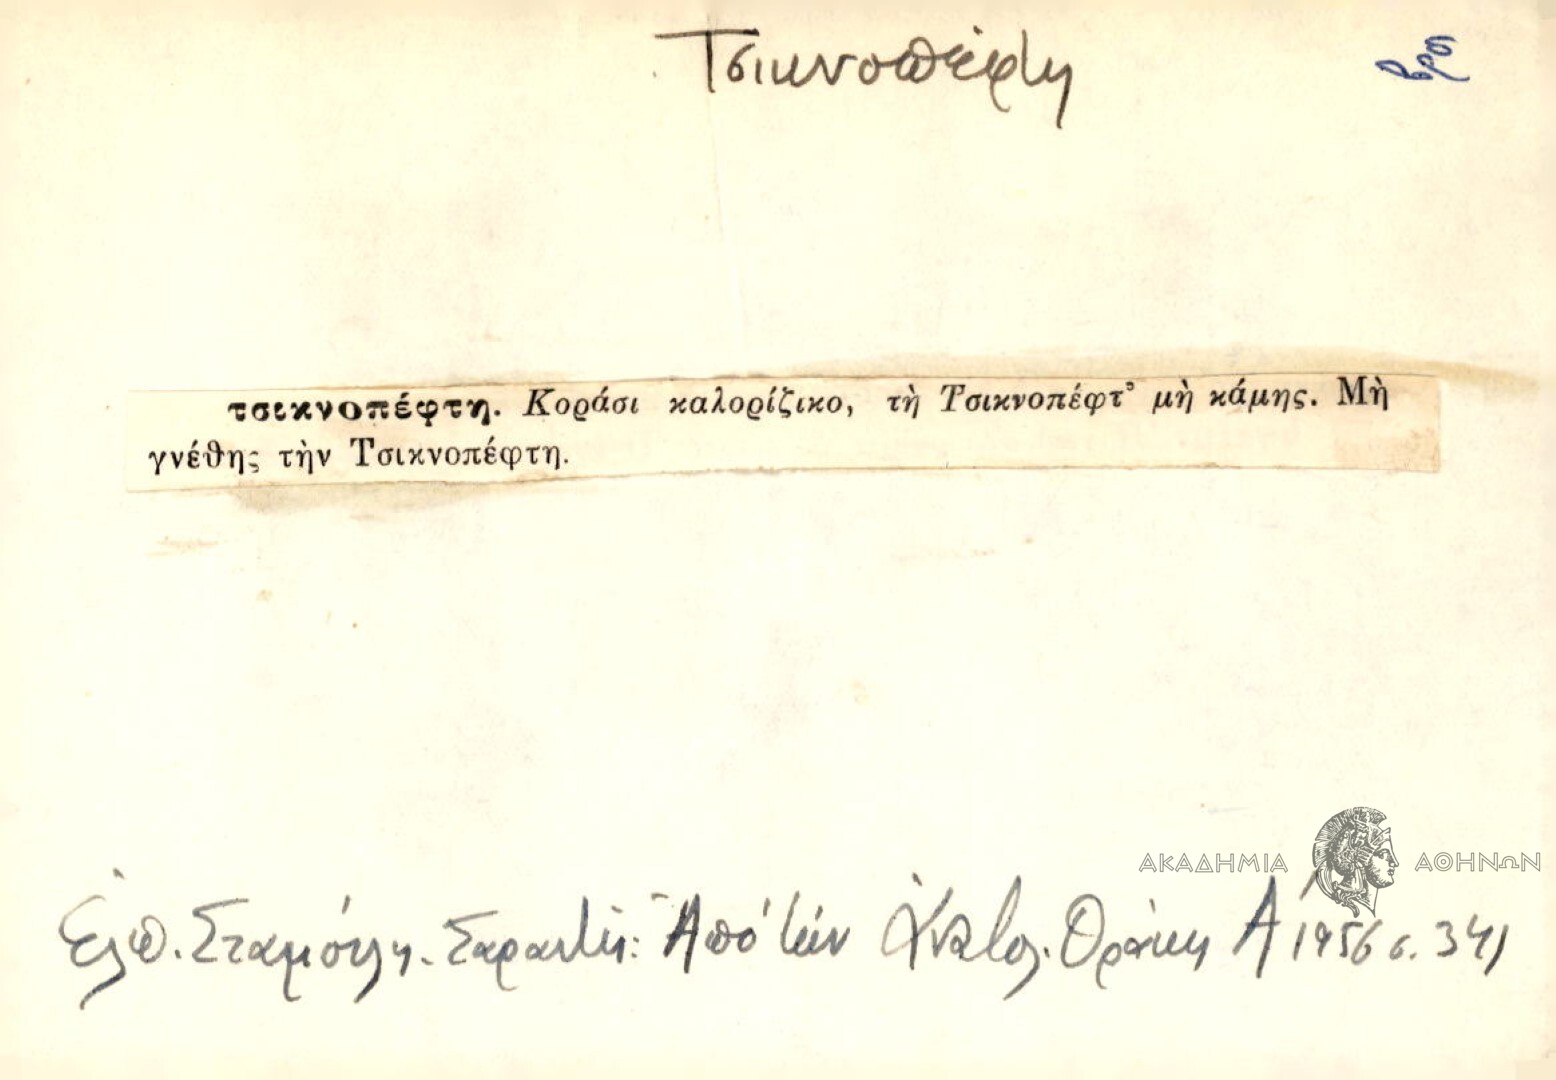 Τσικνοπέφτη
τσικνοπέφτη. Κοράσι καλορίζικο, τὴ Τσικνοπέφτ᾿ μὴ κάμης. Μὴ
γνέθης τὴν Τσικνοπέφτη.
ΑΚΑΔΗΜΙΑ ΑΘΗΝΩΝ
Ἐλπ. Σταμούλη-Σαραντῆ: Ἀπό τήν Ἀνατολ. Θράκη Α΄ 1956 σ. 341